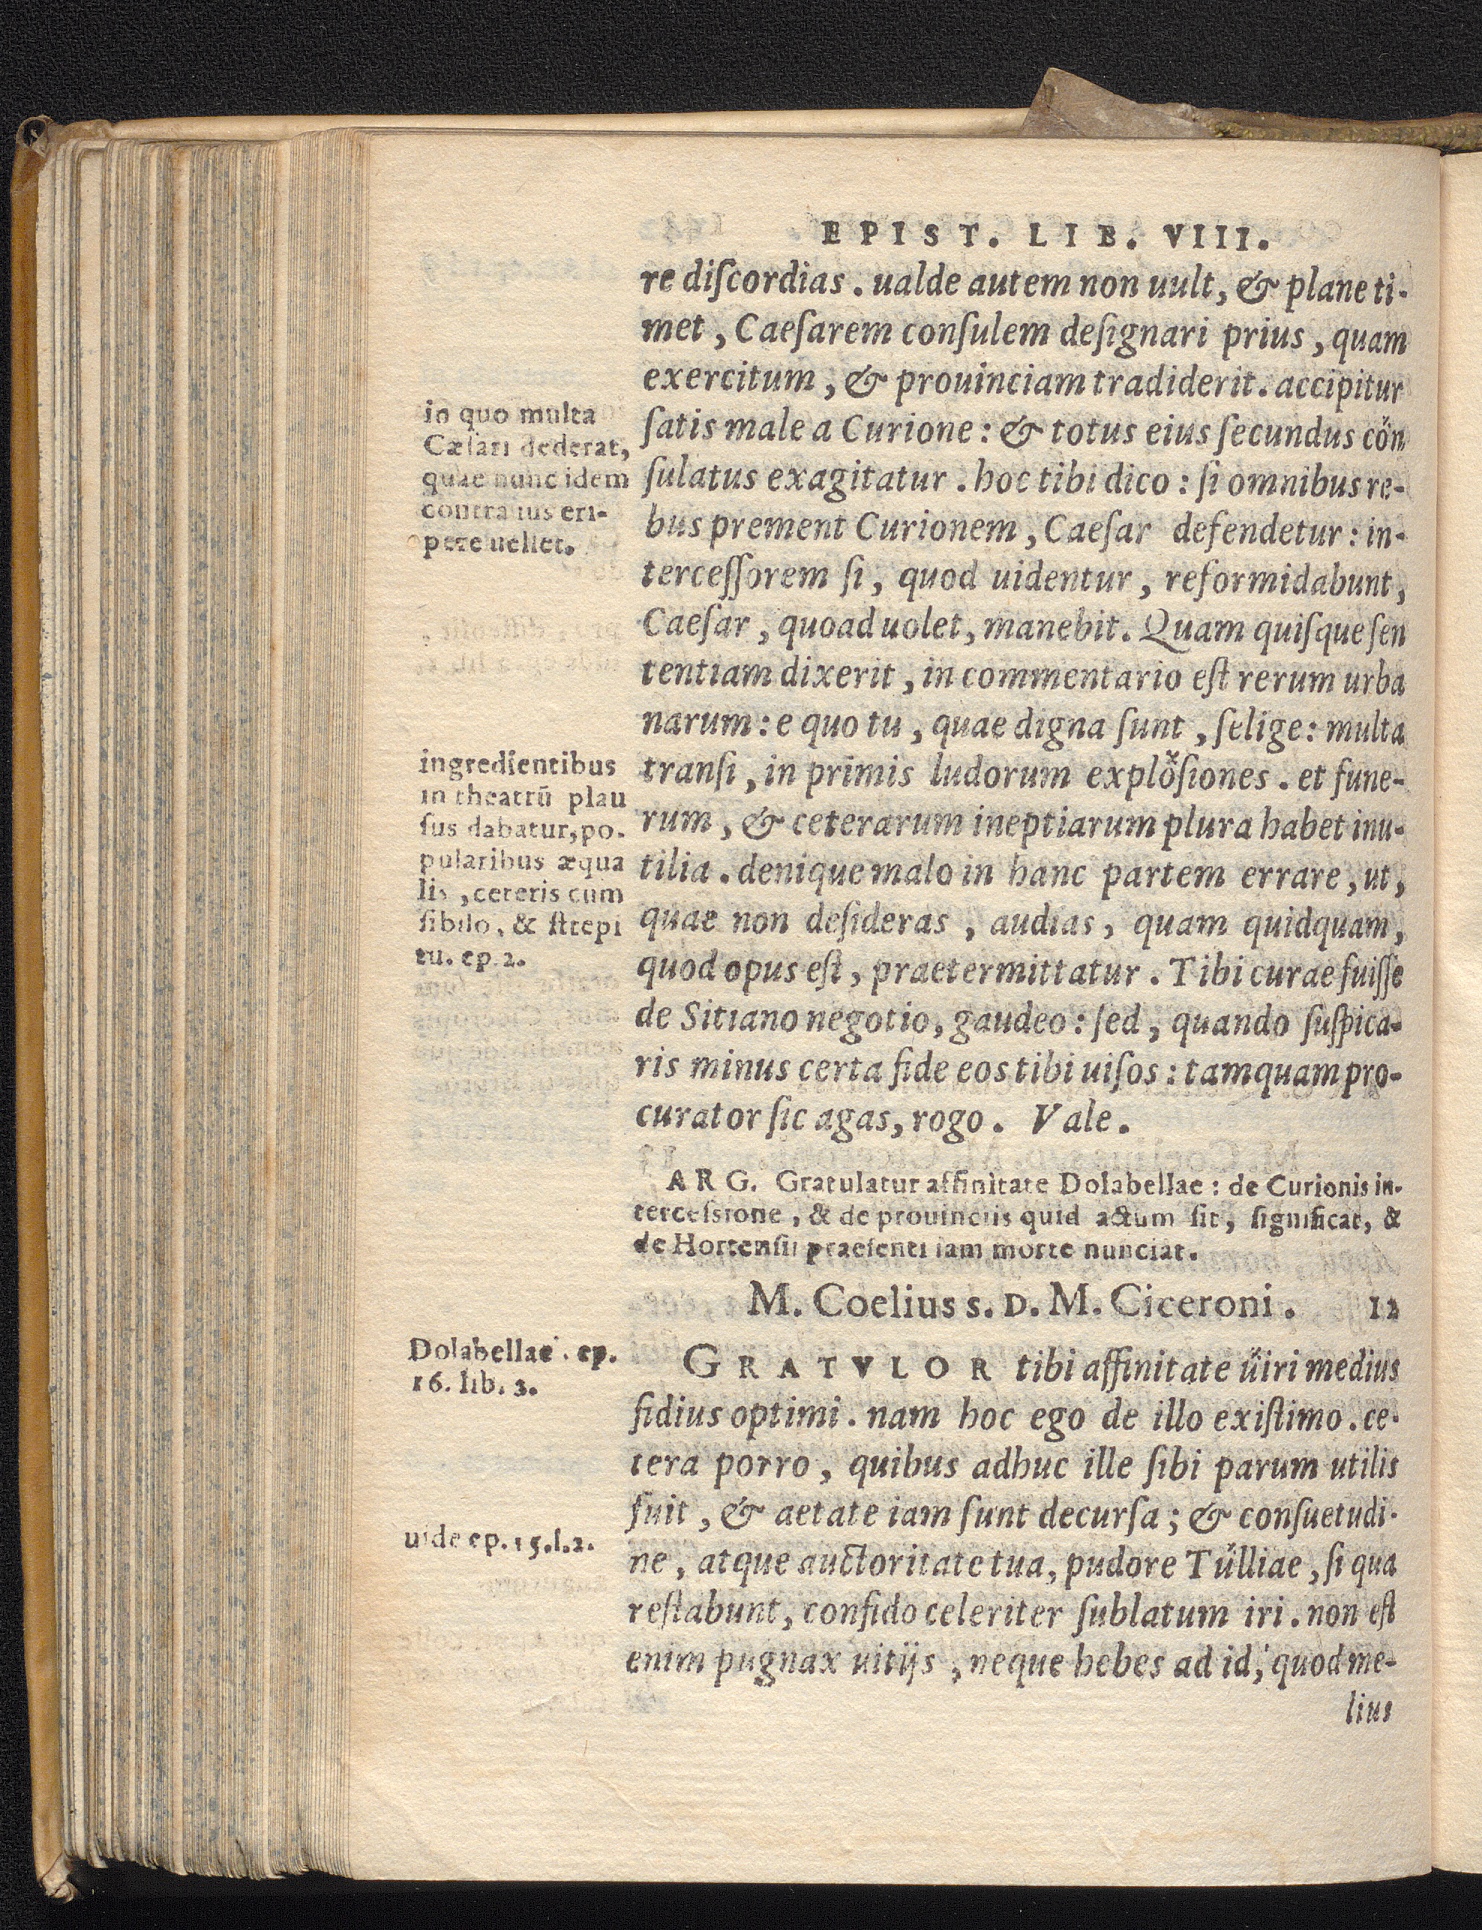 EPIST. LIB. VIII.
re diſcordias. ualde autem non uult, & plane ti-
met, Caeſarem conſulem deſignari prius, quam
exercitum, & prouinciam tradiderit. accipitur
ſatis male a Curione: & totus eius ſecundus con
ſulatus exagitatur. hoc tibi dico: ſi omnibus re-
bus prement Curionem, Caeſar defendetur: in-
terceſſorem ſi, quod uidentur, reformidabunt,
Caeſar, quoad uolet, manebit. Quam quiſque ſen
tentiam dixerit, in commentario eſt rerum urba
narum: e quo tu, quae digna ſunt, ſelige: multa
tranſi, in primis ludorum exploſiones. et fune-
rum, & ceterarum ineptiarum plura habet inu-
tilia. denique malo in hanc partem errare, ut,
quae non deſideras, audias, quam quidquam,
quod opus eſt, praetermittatur. Tibi curae fuiſſe
de Sitiano negotio, gaudeo: ſed, quando ſuſpica-
ris minus certa fide eos tibi uiſos: tamquam pro-
curator ſic agas, rogo. Vale.
in quo multa
Cæſari dederat,
quae nunc idem
contra ius eri-
pere uellet.
ingredientibus
in theatrū plau
ſus dabatur, po-
pularibus æqua
lis, ceteris cum
ſibilo, & ſtrepi
tu. ep. 2.
ARG. Gratulatur affinitate Dolabellae: de Curionis in-
terceſsione, & de prouinciis quid actum ſit, ſignificat, &
de Hortenſii praeſenti iam morte nunciat.
M. Coelius s. D. M. Ciceroni. 12
GRATVLOR tibi affinitate uiri medius
fidius optimi. nam hoc ego de illo exiſtimo. ce-
tera porro, quibus adhuc ille ſibi parum utilis
fuit, & aetate iam ſunt decurſa; & conſuetudi-
ne, atque auctoritate tua, pudore Tulliae, ſi qua
reſtabunt, confido celeriter ſublatum iri. non eſt
enim pugnax uitijs, neque hebes ad id, quod me-
lius
Dolabellae. ep.
16. lib. 3.
uide ep. 15. l. 2.